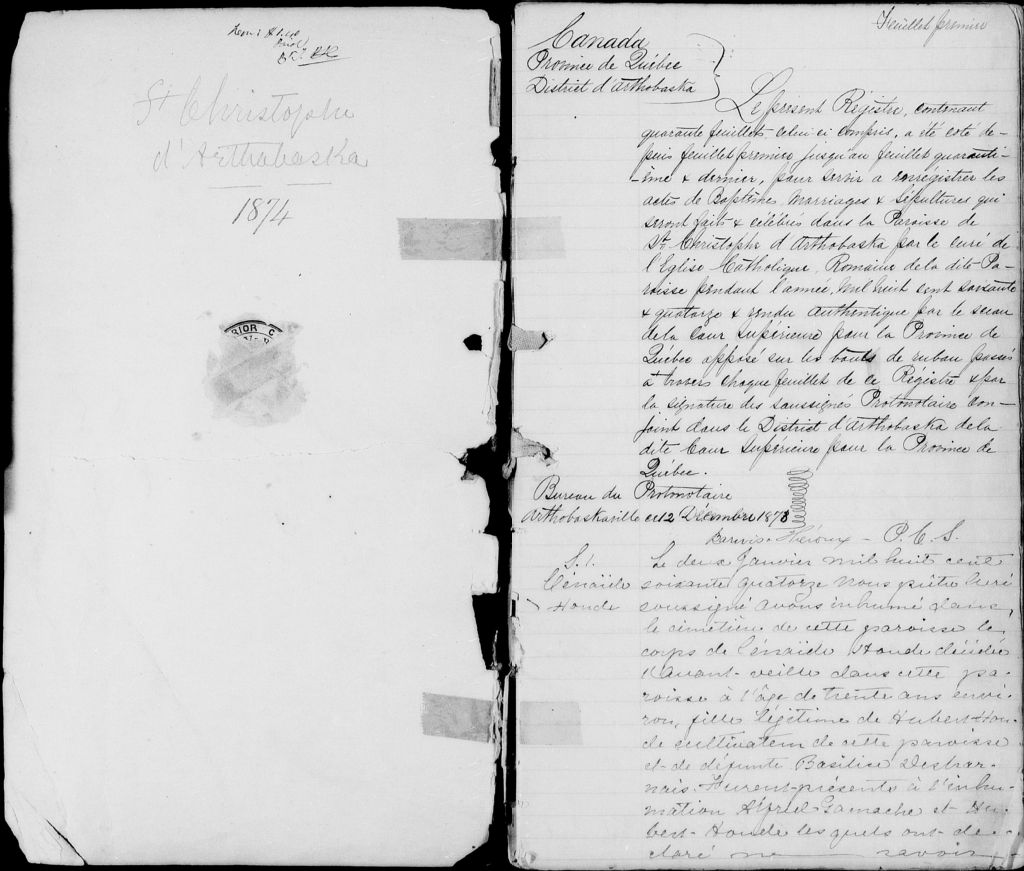 St Christophe
d'Arthabaska
1874
RIOR C
Feuillet premier
Canada
Province de Québec
District d'Arthabaska
Le présent Régistre, contenant
quarante feuillets celui ci compris, a été coté de-
puis feuillet premier jusqu'au feuillet quaranti-
-ème & dernier, pour servir a enregistrer les
actes de Baptême, Marriages & Sépultures qui
seront faits & célébrés dans la Paroisse de
St. Christophe d'Arthabaska par le curé de
l'Eglise Catholique, Romaine de la dite Pa-
roisse pendant l'année, Mil huit cent soixante
& quatorze & rendu authentique par le sceau
de la Cour Supérieure pour la Province de
Québec apposé sur les bouts de ruban passés
à travers chaque feuillet de ce Régistre & par
la signature des soussignés Protonotaire Con-
joint dans le District d'Arthabaska de la
dite Cour Supérieure pour la Province de
Québec.
Bureau du Protonotaire
Arthabaskaville ce 12 Décembre 1873
P. C. S.
S. 1.
Cénaïde
Houde
Le deux Janvier mil huit cent
soixante quatorze Nous prêtre curé
soussigné avons inhumé dans
le cimetière de cette paroisse le
corps de Cénaïde Houde décédée
l'avant-veille dans cette pa-
roisse à l'âge de trente ans envi-
ron, fille légitime de Hubert Hou-
de cultivateur de cette paroisse
et de défunte Basilise Deshar-
nais. Furent présents à l'inhu-
mation Alfred Gamache et Hu-
bert Houde lesquels ont dé-
claré ne savoir